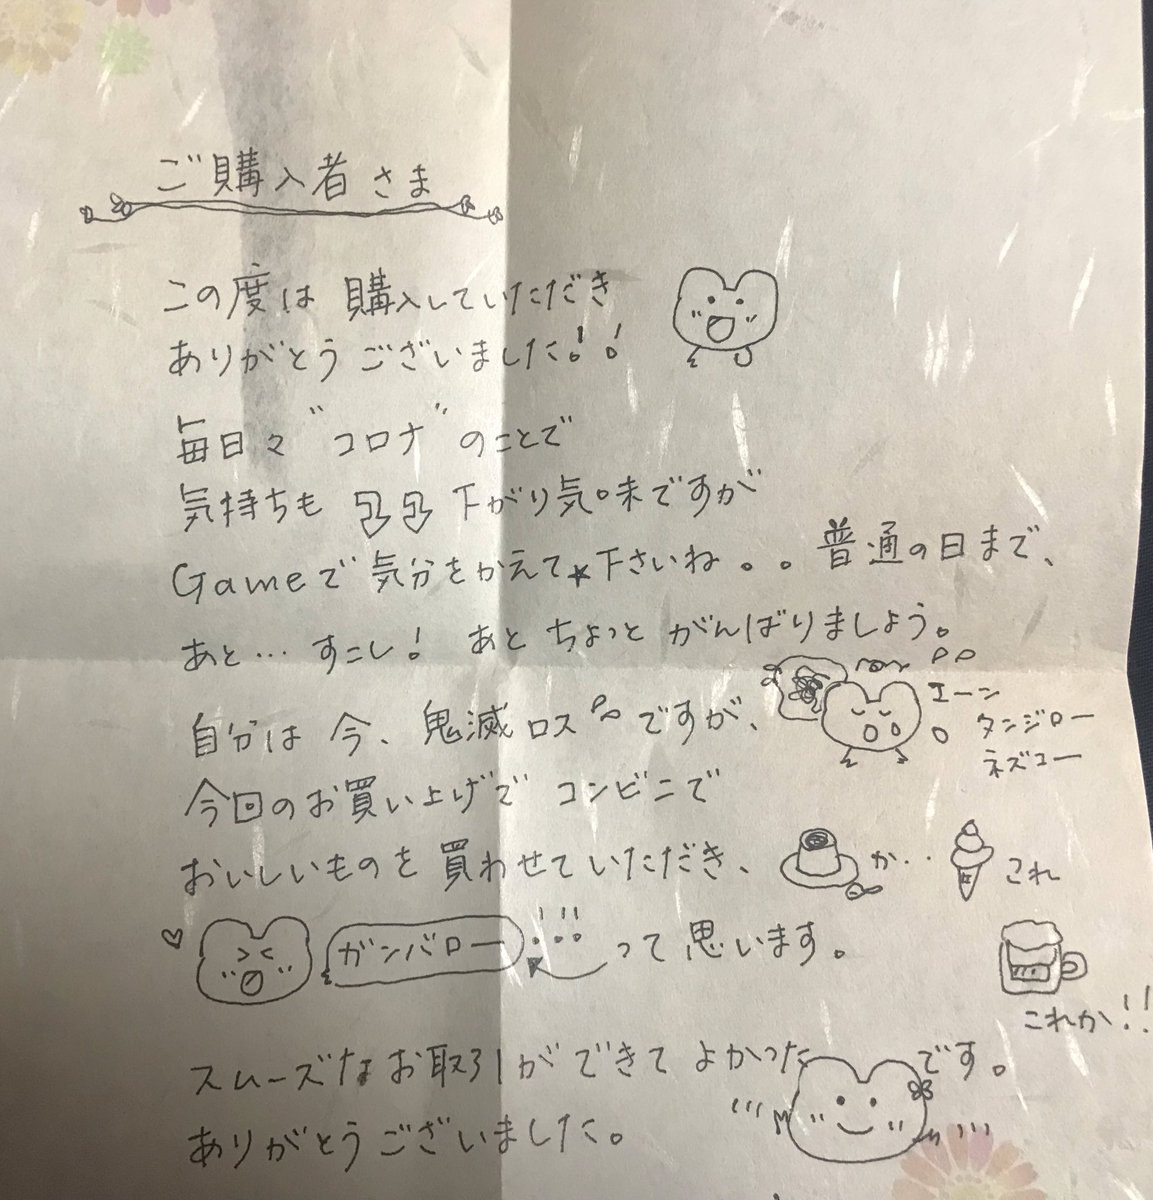 ご購入者さま
この度は 購入していただき
ありがとうございました!!
毎日々"コロナ"のことで
気持ちも 下がり気味ですが
Gameで気分をかえて★下さいね。。普通の日まで、
あと…すこし! あとちょっとがんばりましょう。
自分は今、鬼滅ロスですが、
エーン
タンジロー
ネズコー
今回のお買い上げで コンビニで
おいしいものを買わせていただき、か..これ
これか!!
♡ガンバロー!!!って思います。
スムーズなお取引ができてよかったです。
ありがとうございました。